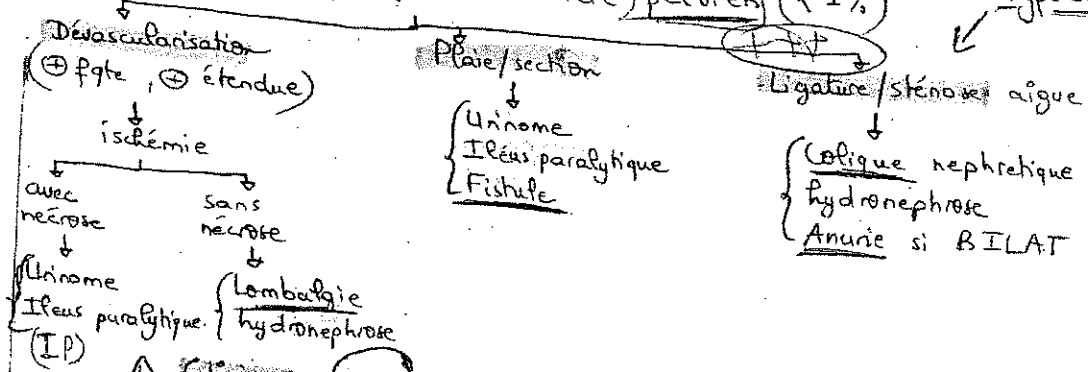 pelvien (< 1%)
Dévascularisation
(⊕ fqte, ⊕ étendue)
ischémie
avec nécrose
Urinome
Iléus paralytique.
(IP)
sans nécrose
Lombalgie
hydronephrose
Plaie/section
Urinome
Iléus paralytique
Fistule
Ligature/sténose aigue
Colique nephretique
hydronephrose
Anurie si BILAT